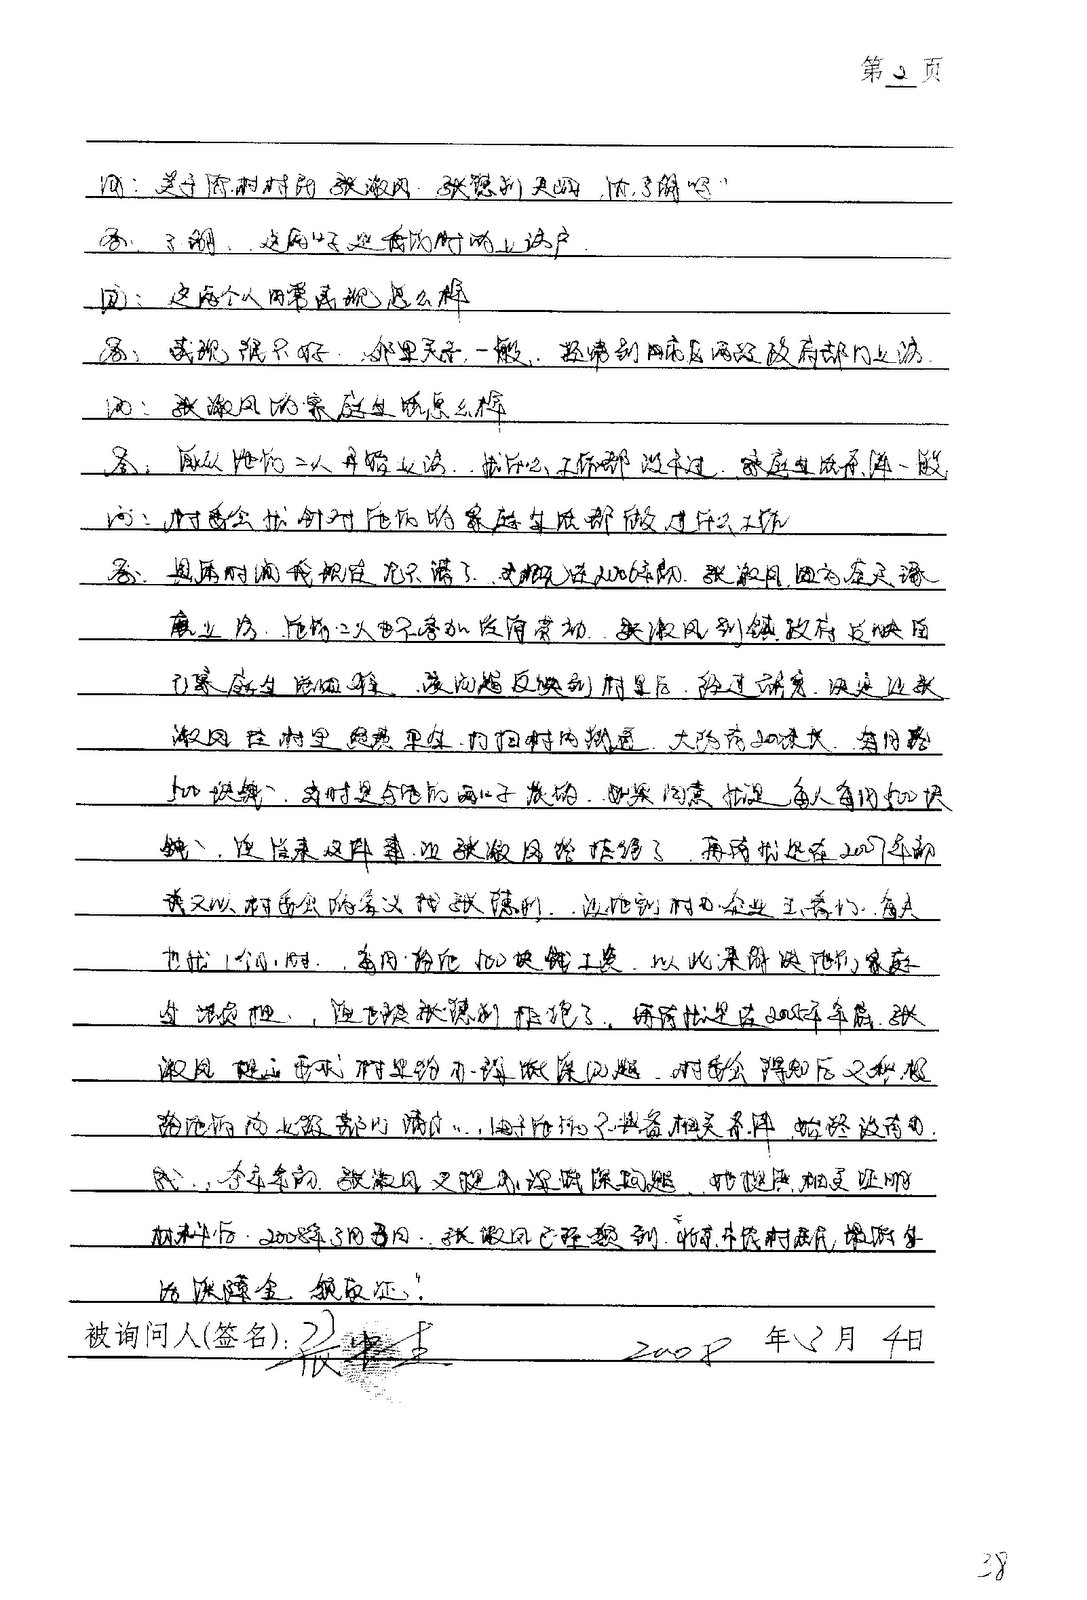 第2页
问：关于你村村民张淑凤、张德利夫妇，你了解吗？
答：了解，这两口子是我们村的上访户
问：这两个人日常表现怎么样
答：表现很不好，邻里关系一般，经常到市区两级政府部门上访
问：张淑凤的家庭生活怎么样
答：自从他们二人开始上访，什么工作都没干过，家庭生活条件一般
问：村委会针对他们的家庭生活都做过什么工作
答：具体时间我现在记不清了，大概在2006年的，张淑凤因为
上访，他们二人也不参加劳动，张淑凤到镇政府反映自
己家庭生活困难，该问题反映到村里后，经过研究，决定让张
淑凤在村里负责卫生，打扫村内街道，大约有20米长，每月给
500块钱，当时是给他们两口子，如果同意就是每人每月500块
钱，但后来这件事让张淑凤给拒绝了，再有就是在2007年初
我又以村委会的名义找张德利，让他到村办企业上，每天
也就1个小时，每月给他500块钱工资，以此来解决他们家庭
生活，但也被张德利拒绝了，再有就是在2005年年底，张
淑凤提出要求村里给办理低保问题，村委会得知后又积极
给他们向上级部门，由于他们不具备相关条件，始终没有办
成，今年年初，张淑凤又提出低保问题，她提供相关证明
材料后，2008年3月，张淑凤已经领到北京市农村居民最低生
活保障金领取证。
被询问人(签名)：张 2008年3月4日
38